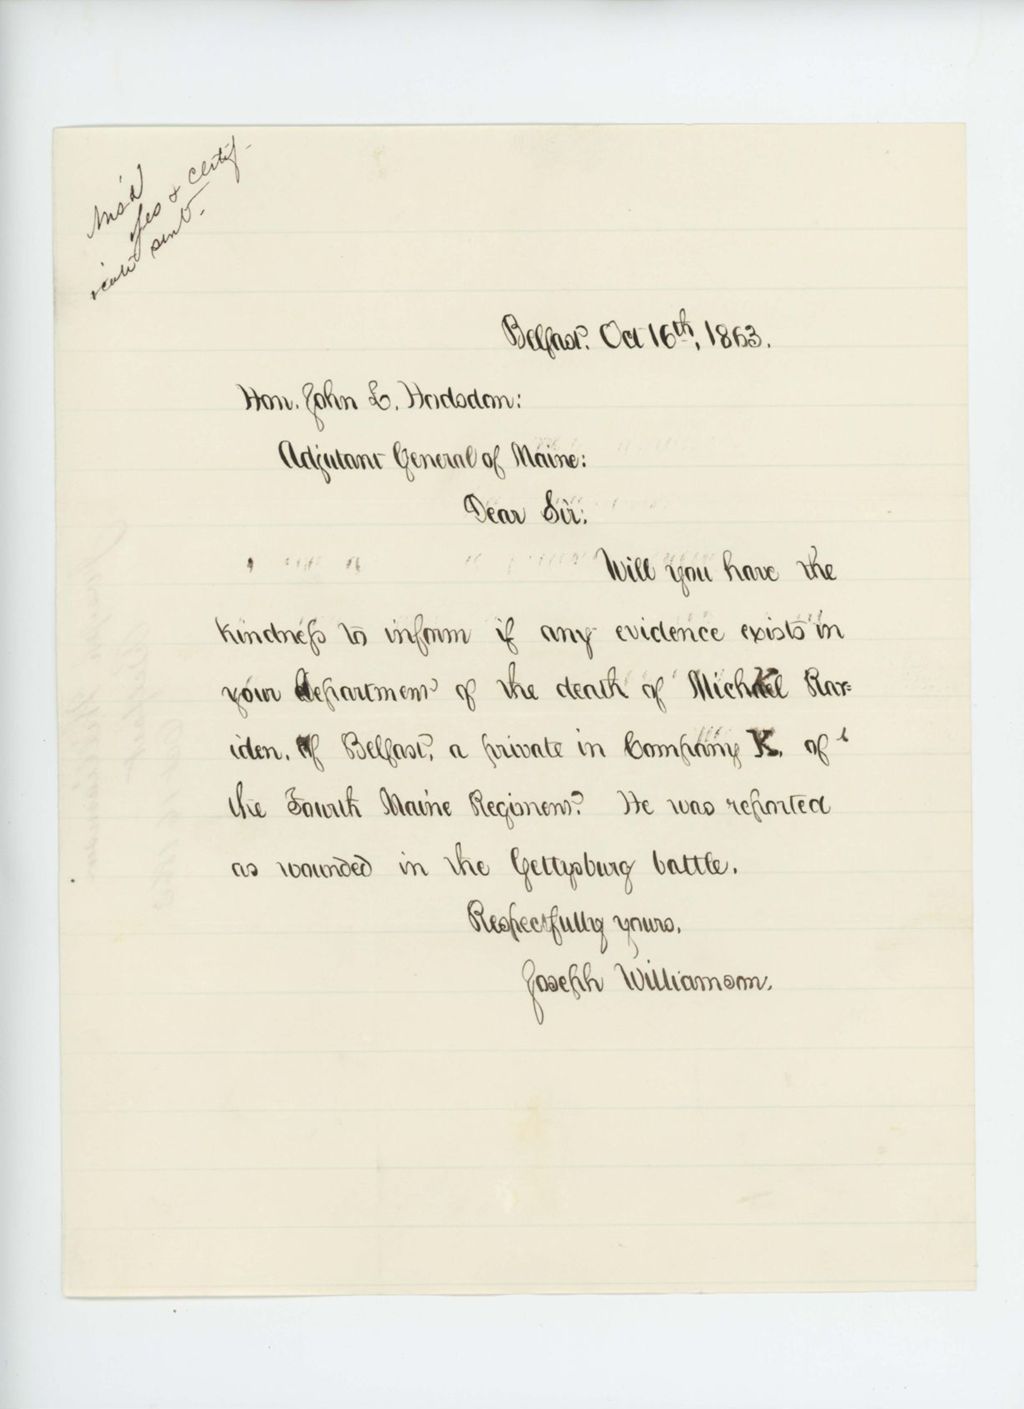 Ans'd
yes & certif-
icate sent.
Belfast. Oct 16th, 1863.
Hon. John L. Hodsdon:
Adjutant General of Maine:
Dear Sir:
Will you have the
kindness to inform if any evidence exists in
your department of the death of Michael Rar-
iden, of Belfast, a private in Company K. of
the Fourth Maine Regiment? He was reported
as wounded in the Gettysburg battle.
Respectfully yours,
Joseph Williamson.